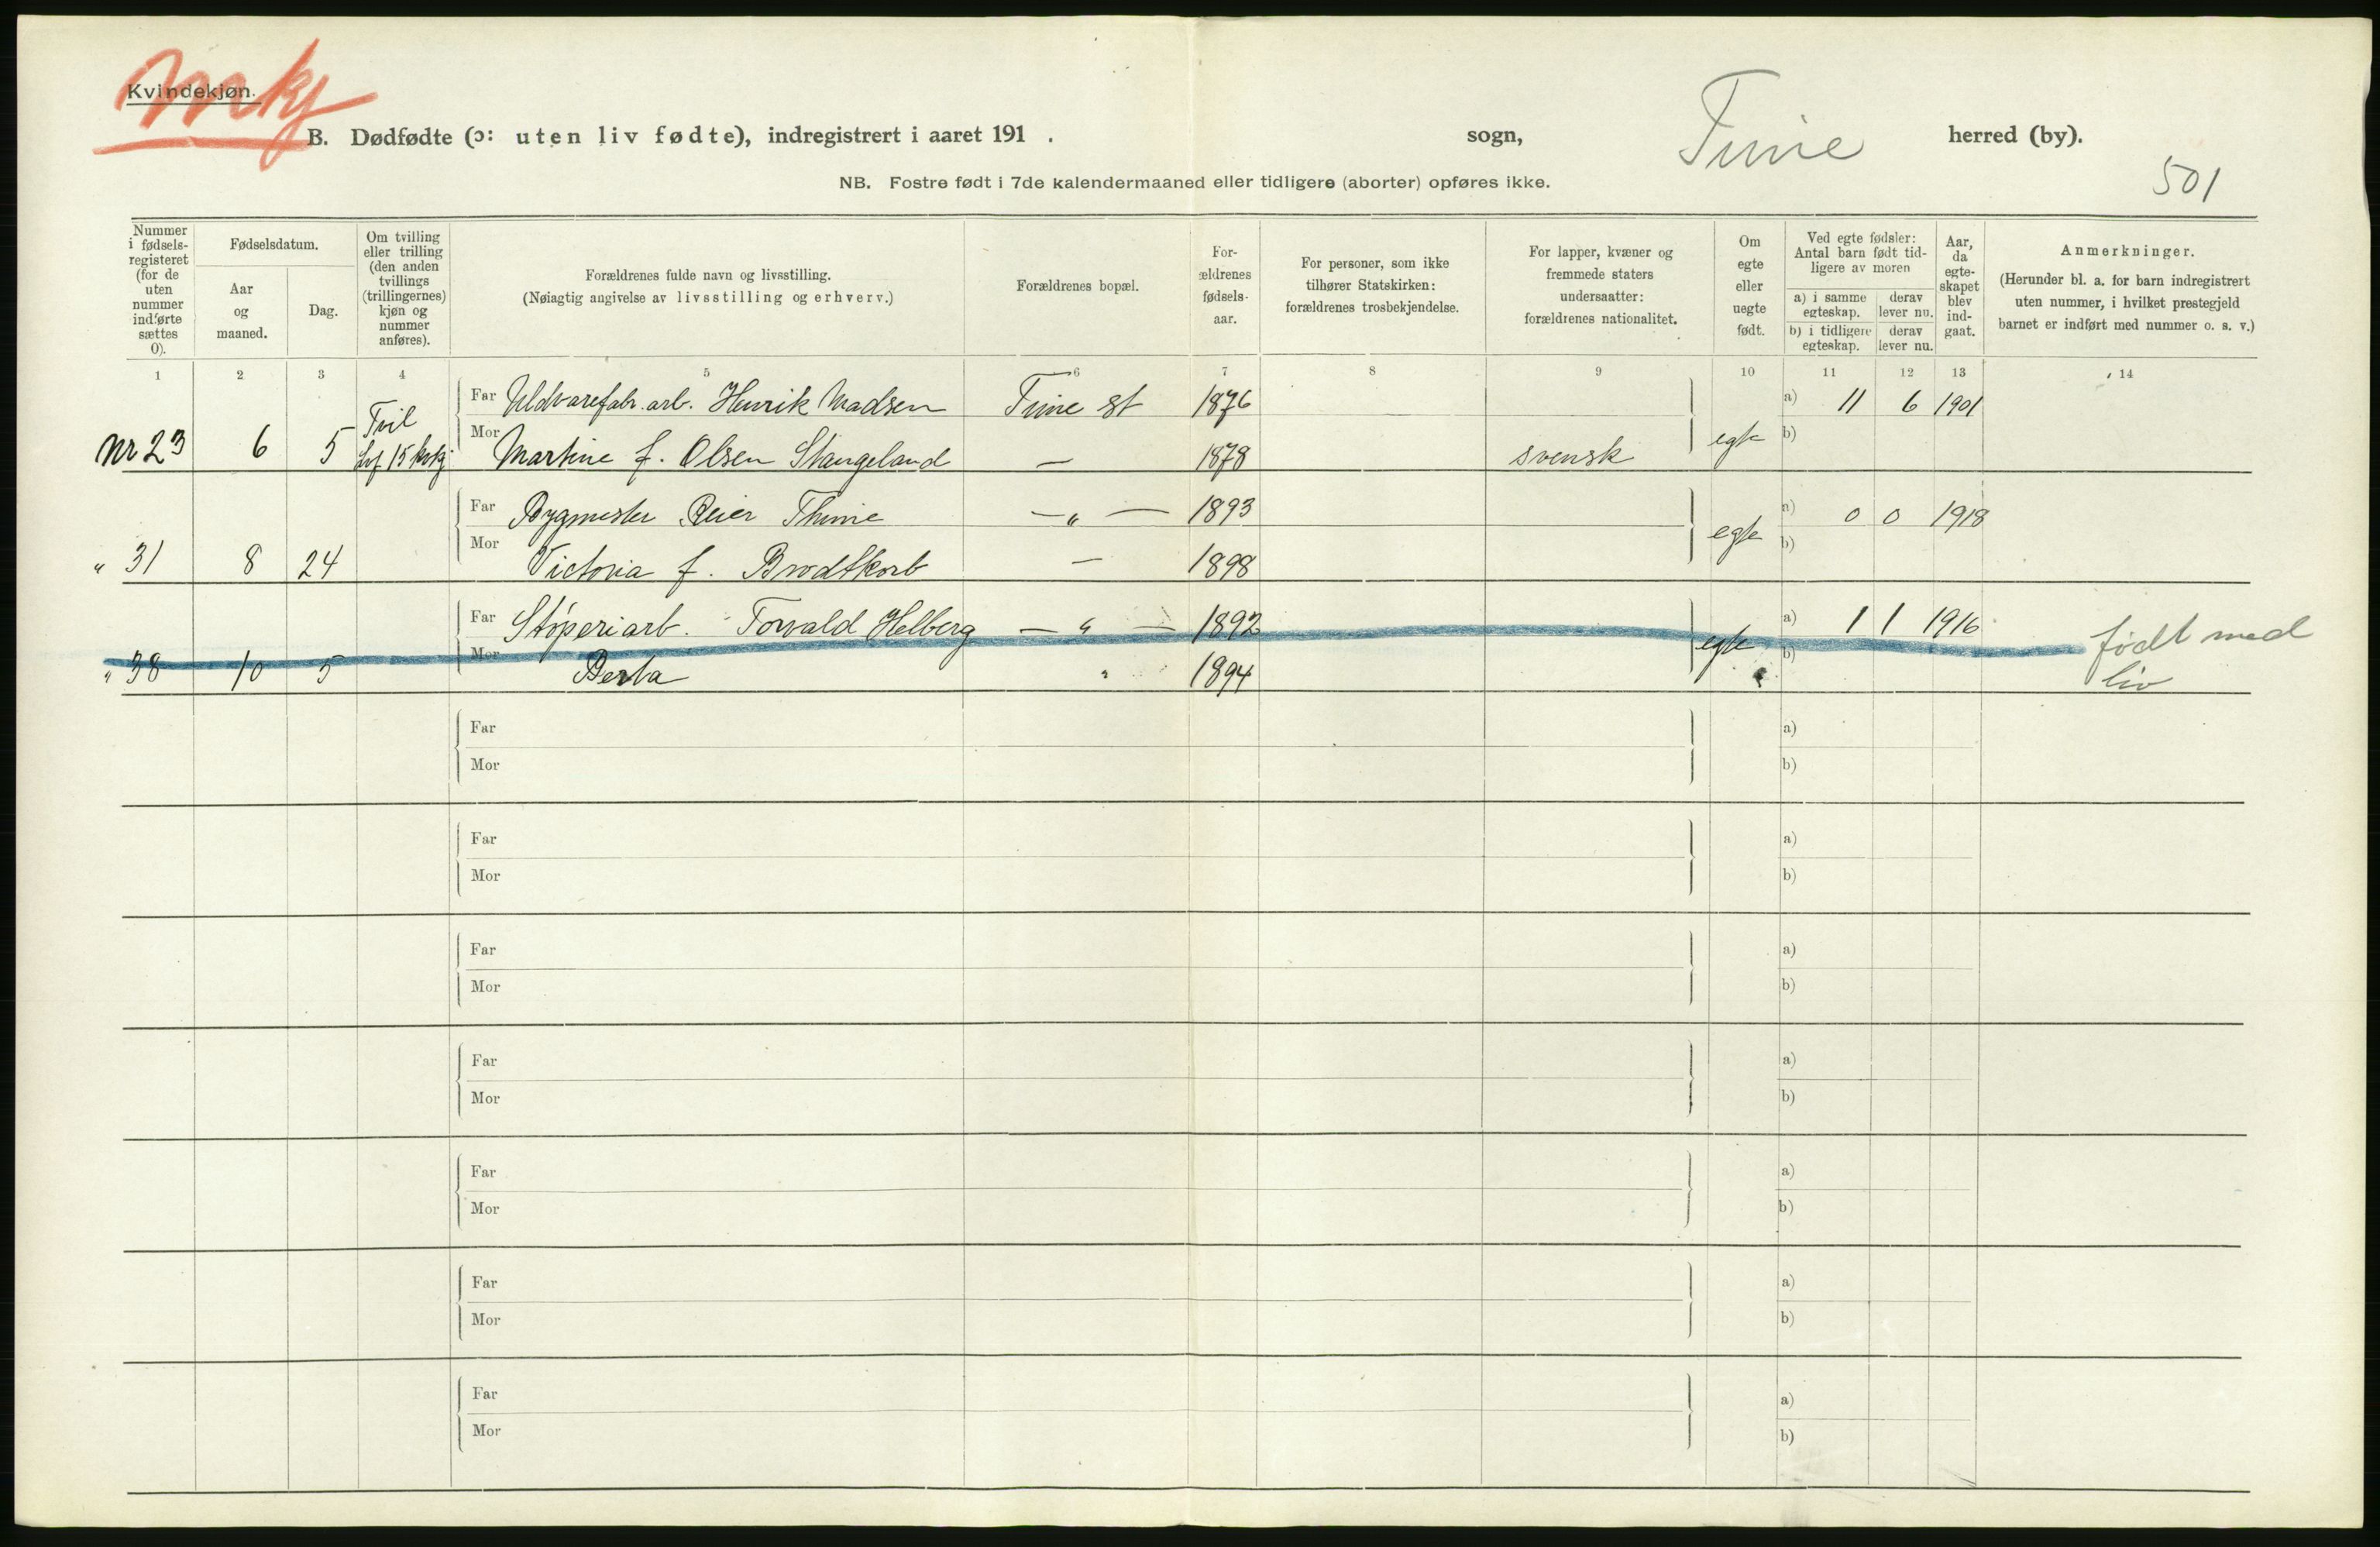 Mkj
Kvindekjøn.
B. Dødfødte (ɔ: uten liv fødte), indregistrert i aaret 191 . sogn, Time herred (by).
NB. Fostre født i 7de kalendermaaned eller tidligere (aborter) opføres ikke.
501
Nummer i fødsels-registeret (for de uten nummer indførte sættes 0).
Fødselsdatum.
Aar og maaned.
Dag.
Om tvilling eller trilling (den anden tvillings (trillingernes) kjøn og nummer anføres).
Forældrenes fulde navn og livsstilling.
(Nøiagtig angivelse av livsstilling og erhverv.)
Forældrenes bopæl.
For-ældrenes fødsels-aar.
For personer, som ikke tilhører Statskirken: forældrenes trosbekjendelse.
For lapper, kvæner og fremmede staters undersaatter: forældrenes nationalitet.
Om egte eller uegte født.
Ved egte fødsler: Antal barn født tid-ligere av moren
a) i samme egteskap. derav lever nu.
b) i tidligere egteskap. derav lever nu.
Aar, da egte-skapet blev ind-gaat.
Anmerkninger.
(Herunder bl. a. for barn indregistrert uten nummer, i hvilket prestegjeld barnet er indført med nummer o. s. v.)
1 2 3 4 5 6 7 8 9 10 11 12 13 14
Far Uldvarefabr. arb. Henrik Madsen Time st 1876 a) 11 6 1901
Nr 23 6 5 Tvil Lf 15 Mkj Mor Martine f. Olsen Stangeland — 1878 svensk egte b)
Far Bygmester Reier Thime — " — 1893 a) 0 0 1918
" 31 8 24 Mor Victoria f. Brodtkorb — 1898 egte b)
Far Støperiarb. Torvald Helberg — " — 1892 a) 1 1 1916 født med
" 38 10 5 Mor Berta " 1894 egte b) liv
Far a)
Mor b)
Far a)
Mor b)
Far a)
Mor b)
Far a)
Mor b)
Far a)
Mor b)
Far a)
Mor b)
Far a)
Mor b)